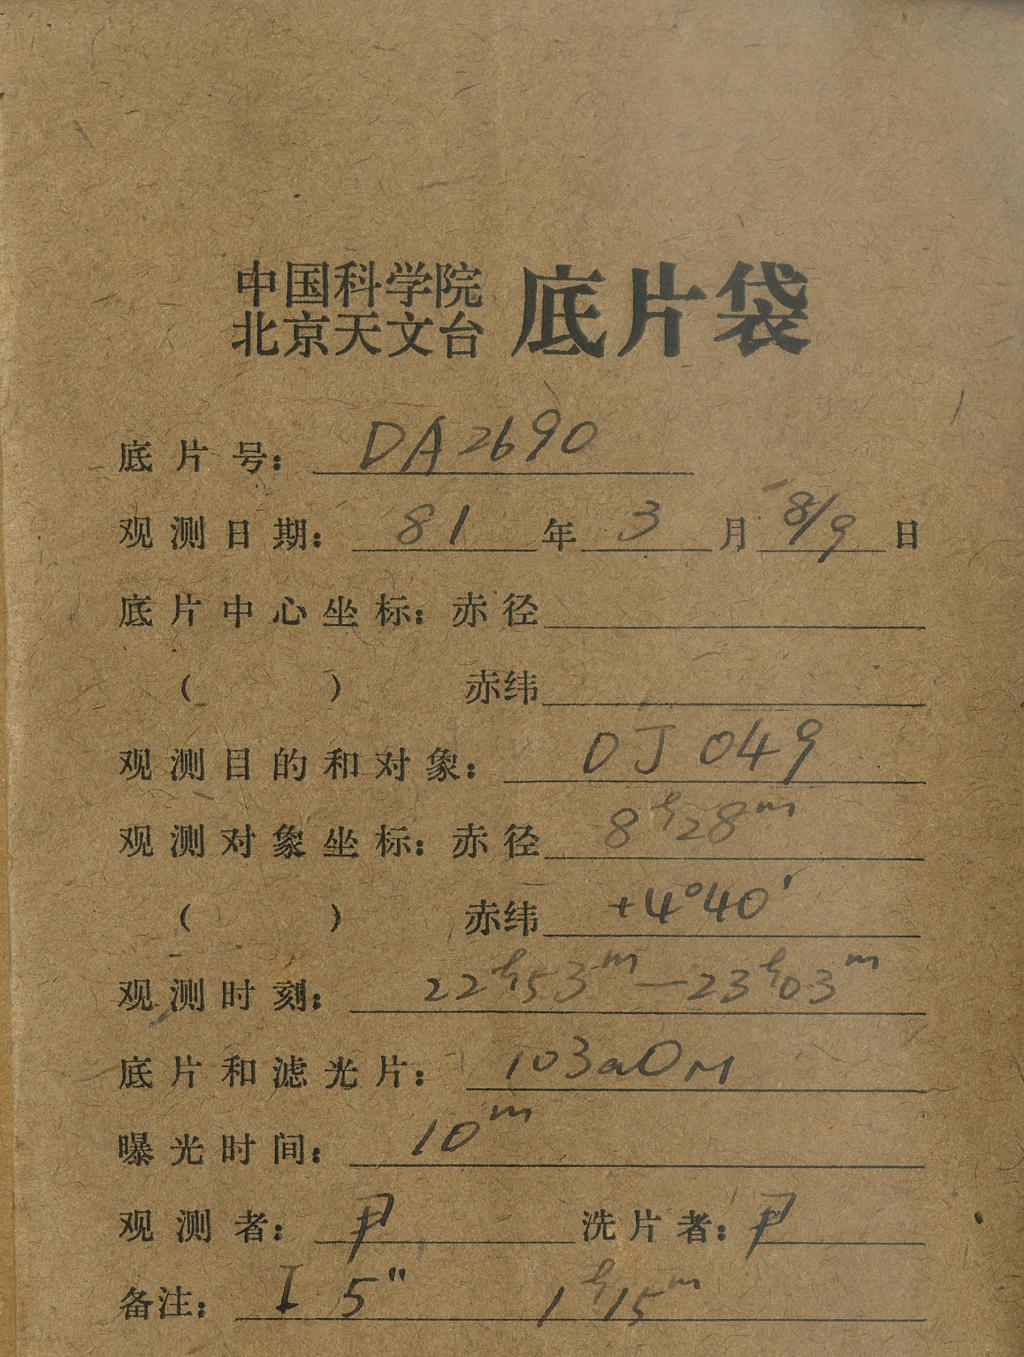 中国科学院
北京天文台 底片袋
底片号: DA2690
观测日期: 81 年 3 月 8/9 日
底片中心坐标: 赤径
( ) 赤纬
观测目的和对象: OJ 049
观测对象坐标: 赤径 8h28m
( ) 赤纬 +4°40'
观测时刻: 22h53m—23h03m
底片和滤光片: 103aO
曝光时间: 10m
观测者: 尹 洗片者: 尹
备注: I 5" 1h15m